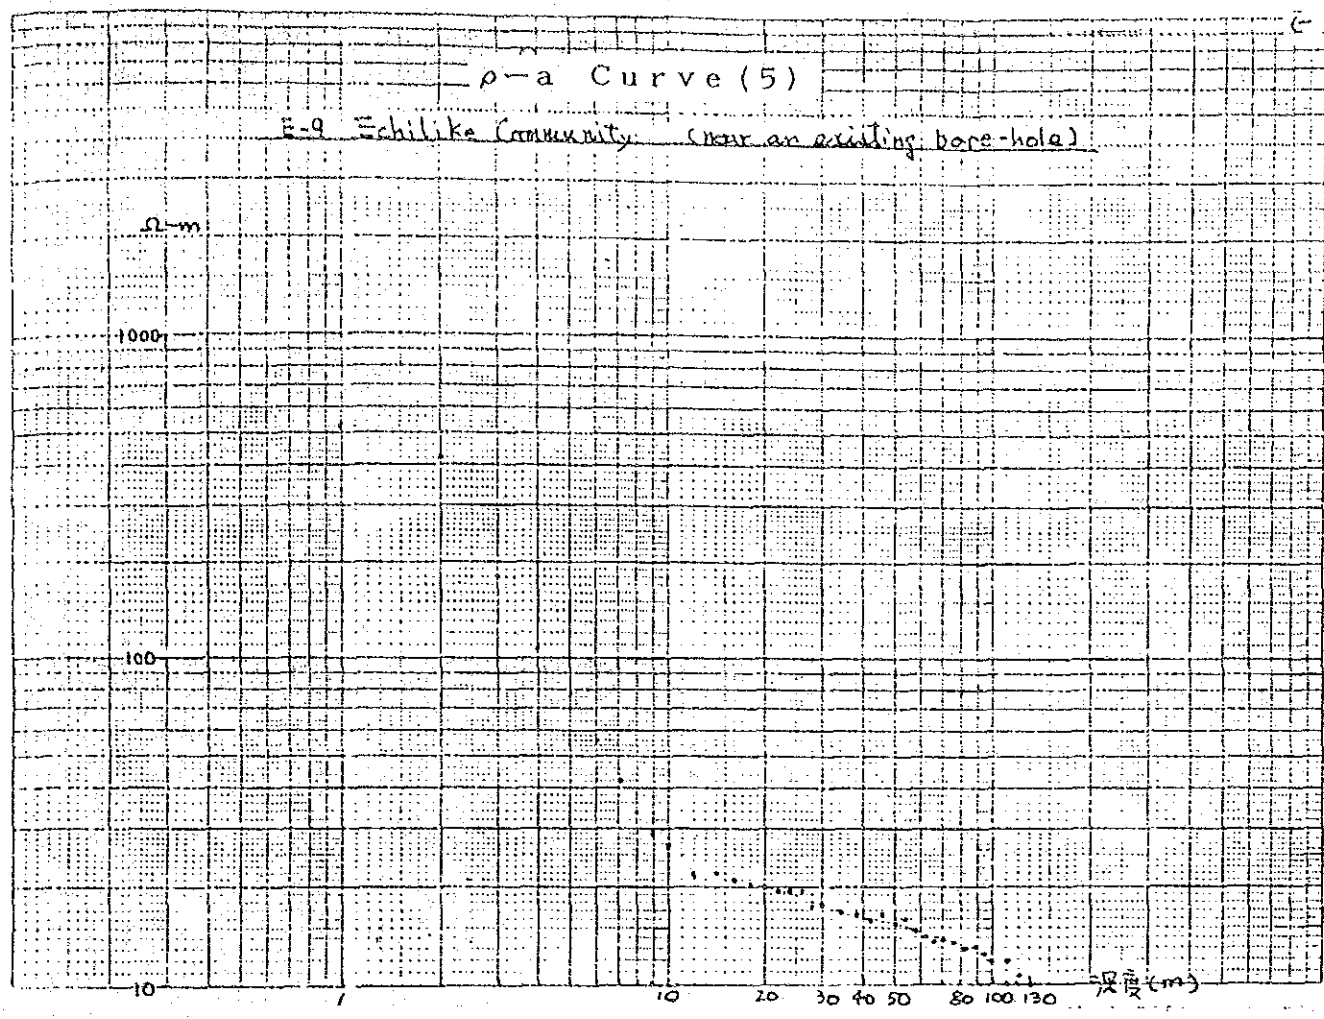 ρ-a Curve (5)
E-9 Echilike Community (near an existing bore-hole)
Ω-m
1000
100
10
1 10 20 30 40 50 80 100 130 深度(m)